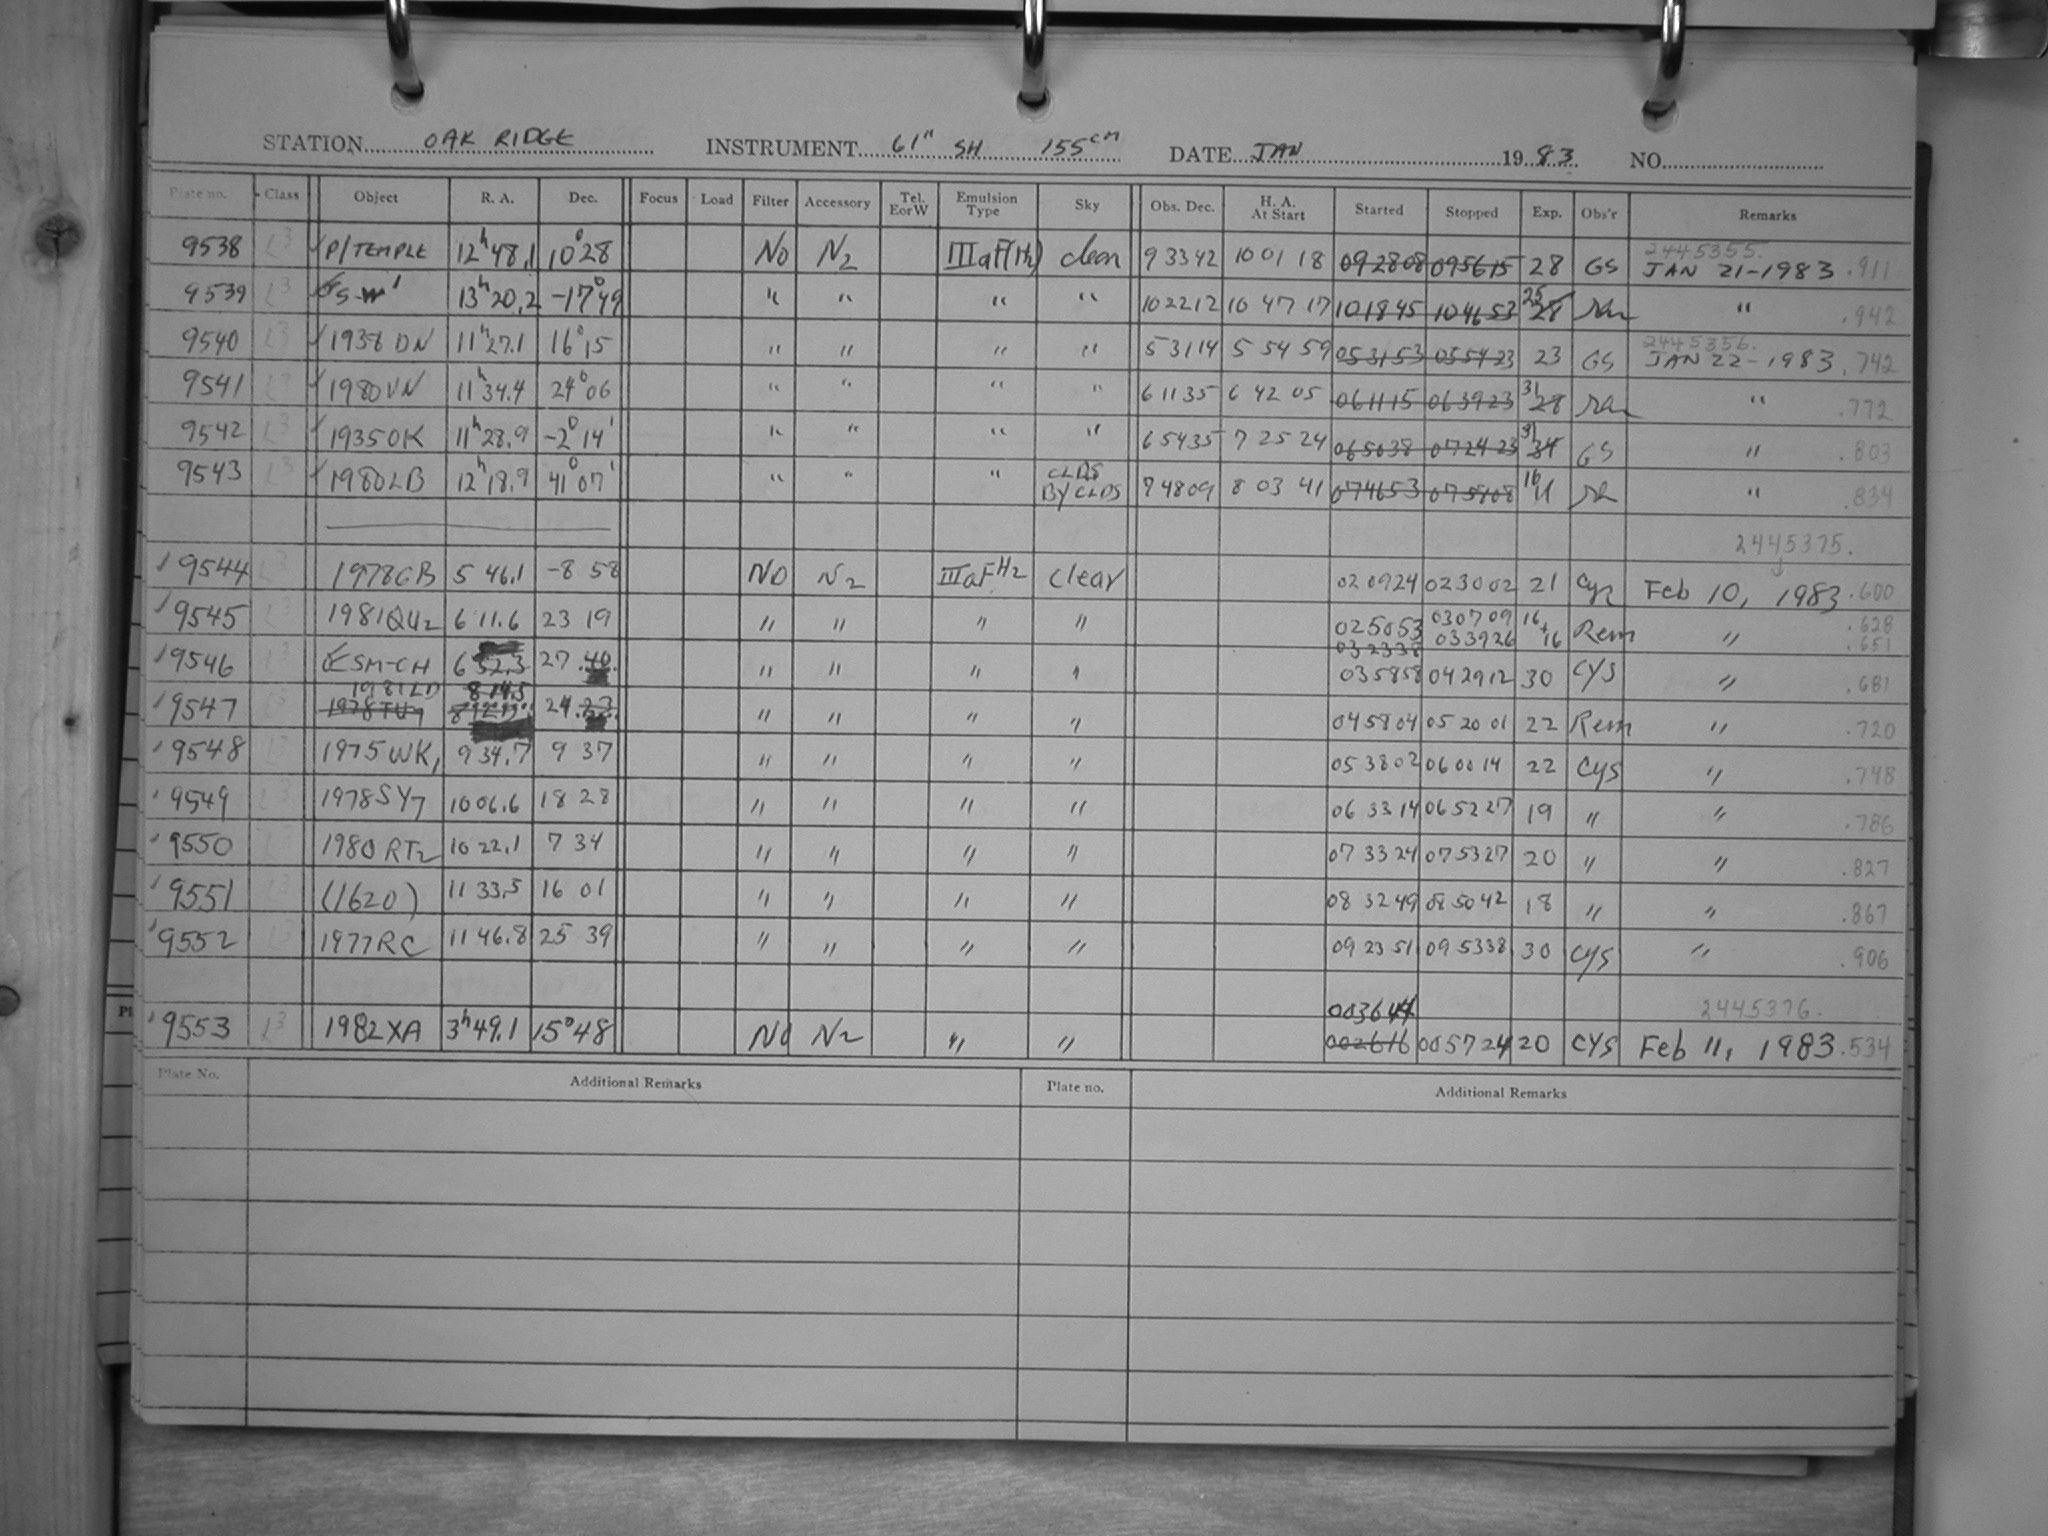 STATION OAK RIDGE INSTRUMENT 61" SH 155cm DATE JAN 1983 NO.
Plate no. Class Object R. A. Dec. Focus Load Filter Accessory Tel. E or W Emulsion Type Sky Obs. Dec. H. A. At Start Started Stopped Exp. Obs'r Remarks
2445355.
9538 L3 P/TEMPLE 12h 48.1 10° 28 NO N2 IIIaF(H2) clear 9 33 42 10 01 18 092808 095615 28 GS JAN 21-1983 .911
9539 L3 S-W1 13h 20.2 -17° 49 " " " " 10 22 12 10 47 17 101845 104653 25 28 " .942
2445356.
9540 L3 1938 DN 11h 27.1 16° 15 " " " " 5 31 14 5 54 59 053153 035423 23 GS JAN 22-1983 .742
9541 L3 1980VN 11h 34.4 24° 06 " " " " 6 11 35 6 42 05 061115 063923 31 28 " .772
9542 L3 1935OK 11h 28.9 -2° 14' " " " " 6 54 35 7 25 24 065038 072423 31 34 GS " .803
9543 L3 1980LB 12h 18.9 41° 07' " " " CLDS BY CLDS 7 48 09 8 03 41 074653 075808 16 11 " .834
2445375.
9544 L3 1978GB 5 46.1 -8 58 NO N2 IIIaF H2 clear 020924 023002 21 Cys Feb 10, 1983 .600
9545 L3 1981QU2 6 11.6 23 19 " " " " 025053 030709 16 Rem " .628
032338 033926 +16 .651
9546 L3 SM-CH 6 52.3 27 40 " " " " 035858 042912 30 CYS " .681
1981LD 8 14.5
9547 L3 1978TU7 24 23 " " " " 045804 052001 22 Rem " .720
9548 L3 1975WK1 9 34.7 9 37 " " " " 053802 060014 22 CYS " .748
9549 L3 1978SY7 10 06.6 18 28 " " " " 063314 065227 19 " " .786
9550 L3 1980 RT2 10 22.1 7 34 " " " " 073324 075327 20 " " .827
9551 L3 (1620) 11 33.5 16 01 " " " " 083249 085042 18 " " .867
9552 L3 1977RC 11 46.8 25 39 " " " " 092351 095338 30 CYS " .906
003644 2445376.
9553 L3 1982XA 3h 49.1 15° 48 NO N2 " " 002616 005724 20 CYS Feb 11, 1983 .534
Plate No. Additional Remarks Plate no. Additional Remarks